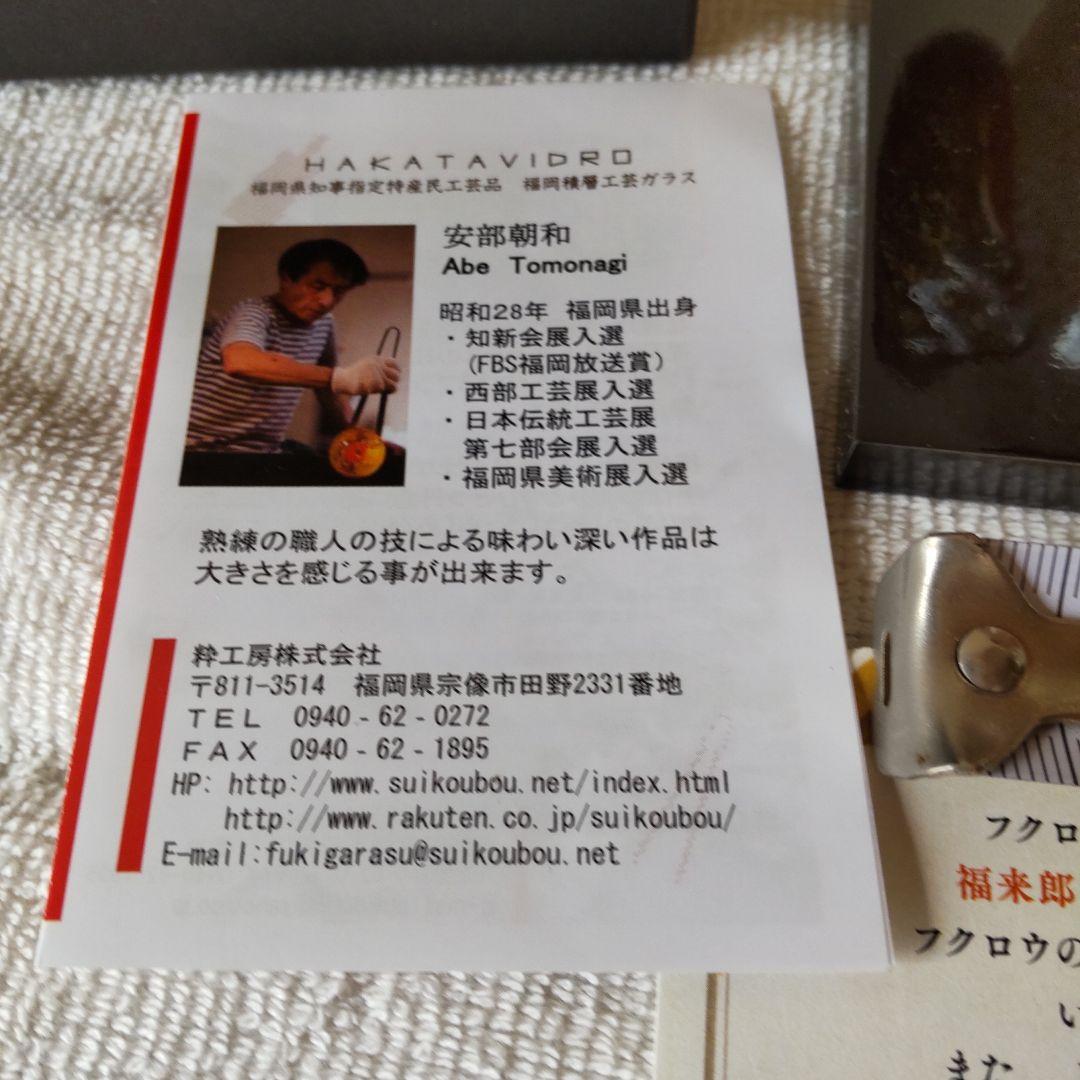 HAKATAVIDRO
福岡県知事指定特産民工芸品　福岡積層工芸ガラス
安部朝和
Abe Tomonagi
昭和28年 福岡県出身
・知新会展入選
(FBS福岡放送賞)
・西部工芸展入選
・日本伝統工芸展
第七部会展入選
・福岡県美術展入選
熟練の職人の技による味わい深い作品は
大きさを感じる事が出来ます。
粋工房株式会社
〒811-3514　福岡県宗像市田野2331番地
TEL 0940-62-0272
FAX 0940-62-1895
HP: http://www.suikoubou.net/index.html
http://www.rakuten.co.jp/suikoubou/
E-mail:fukigarasu@suikoubou.net
フクロ
福来郎
フクロウの
い
また